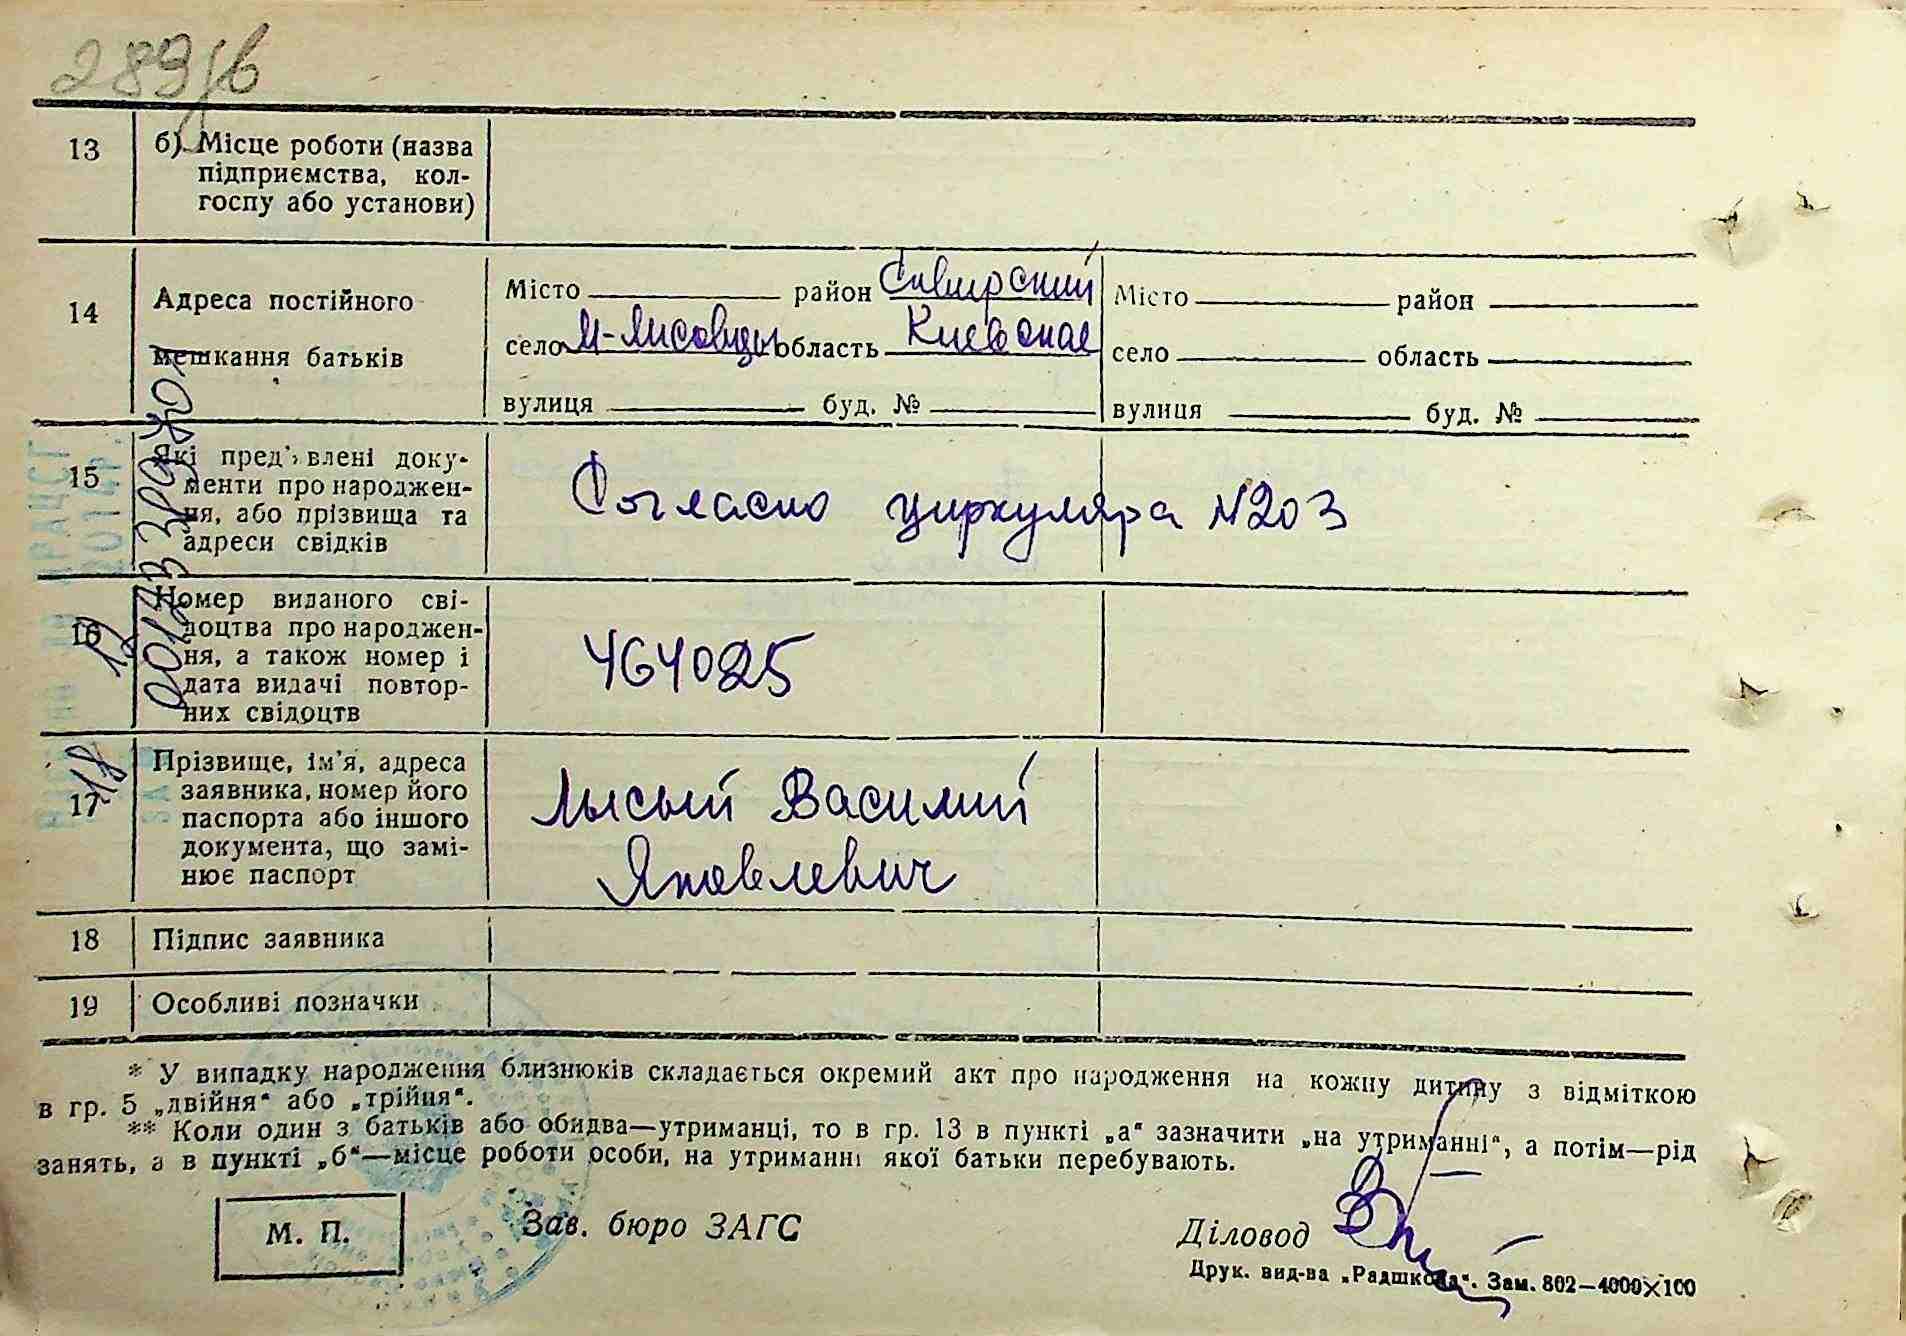 289зв
13 б) Місце роботи (назва
підприємства, кол-
госпу або установи)
14 Адреса постійного
мешкання батьків
Місто район Сквирский
село М-Лисовцы область Киевская
вулиця буд. №
Місто район
село область
вулиця буд. №
15 Які пред'явлені доку-
менти про народжен-
ня, або прізвища та
адреси свідків
Согласно циркуляра №203
16 Номер виданого сві-
доцтва про народжен-
ня, а також номер і
дата видачі повтор-
них свідоцтв
464025
17 Прізвище, ім'я, адреса
заявника, номер його
паспорта або іншого
документа, що замі-
нює паспорт
Лысый Василий
Яковлевич
18 Підпис заявника
19 Особливі позначки
* У випадку народження близнюків складається окремий акт про народження на кожну дитину з відміткою
в гр. 5 „двійня“ або „трійня“.
** Коли один з батьків або обидва—утриманці, то в гр. 13 в пункті „а“ зазначити „на утриманні“, а потім—рід
занять, а в пункті „б“—місце роботи особи, на утриманні якої батьки перебувають.
М. П.
Зав. бюро ЗАГС
Діловод
Друк. вид-ва „Радшкола“. Зам. 802—4000×100